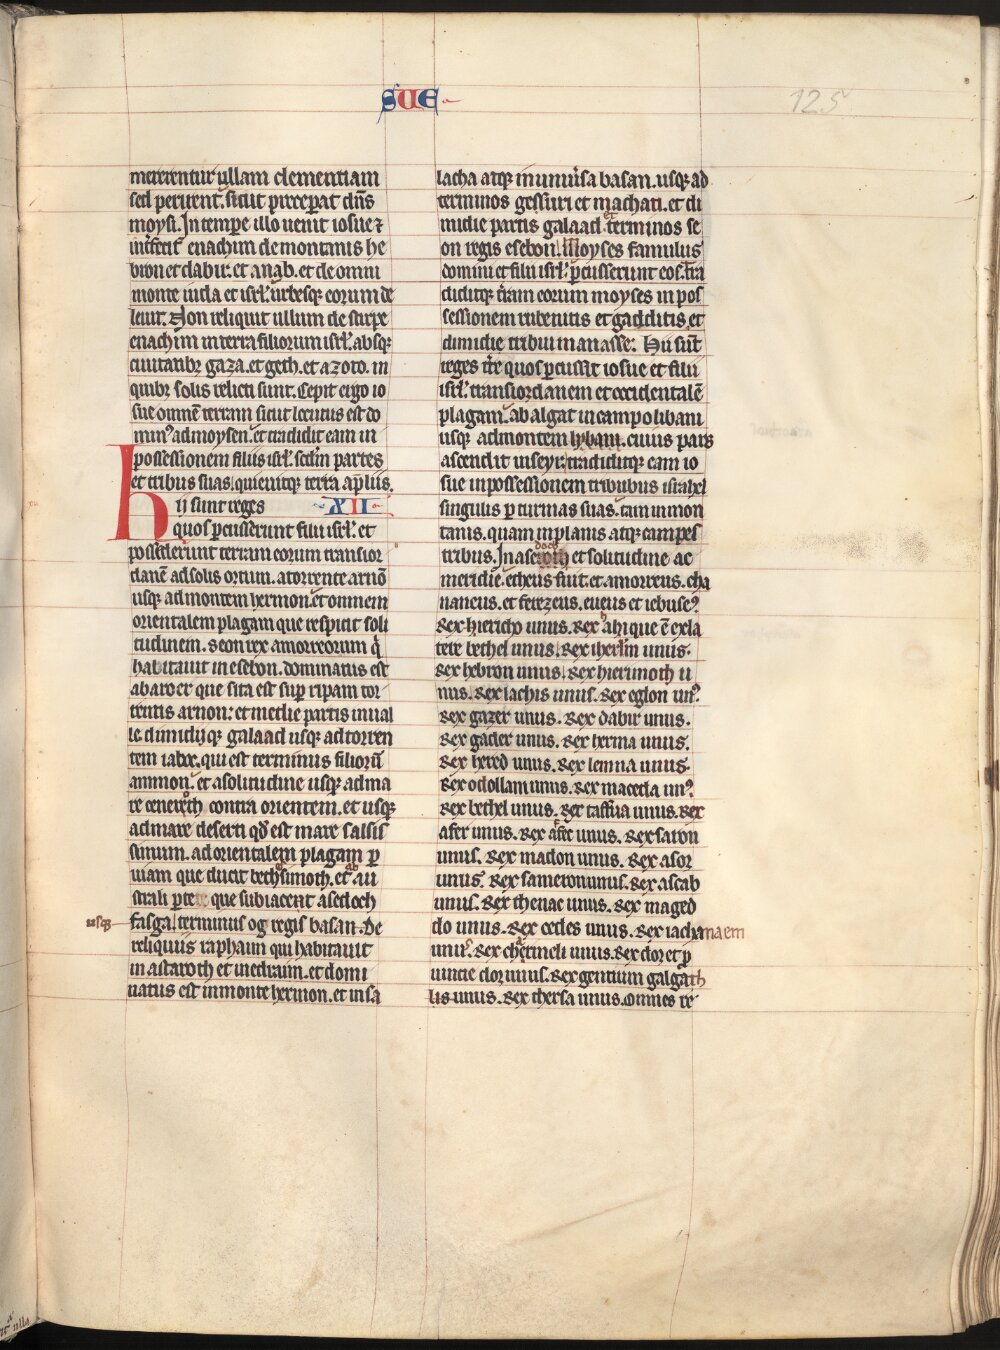 SUE
125
mererentur ullam clementiam
sed perirent. sicut preceperat dn̄s
moysi. In tempe illo uenit iosue ⁊
int̄fecit enachim de montanis he
bron et dabir. et anab. et de omni
monte iuda et isrl̄. urbesq; eorum de
leuit. Non reliquit ullum de stirpe
enachim in terra filiorum isrl̄. absq;
ciuitatibꝫ gaza. et geth. et azoto. in
quibꝫ solis relicti sunt. Cepit ergo io
sue omnē terram sicut locutus est do
minꝰ ad moysen. et tradidit eam in
possessionem filiis isrl̄. scd̄m partes
et tribus suas. quieuitq; terra a p̄liis.
XII
hij sunt reges
quos pcusserunt filii isrl̄. et
possederunt terram eorum transior
danē ad solis ortum. a torrente arnō
usq; ad montem hermon. et omnem
orientalem plagam que respicit soli
tudinem. Seon rex amorreorum q̇
habitauit in esebon. dominatus est
ab aroer que sita est sup ripam tor
rentis arnon: et medie partis in ual
le dimidijq; galaad usq; ad torren
tem iaboc. qui est terminus filiorū
ammon. et a solitudine usq; ad ma
re ceneroth contra orientem. et usq;
ad mare deserti qd̄ est mare salsis
simum. ad orientalem plagam p
uiam que ducit bethsimoth. et ab au
strali pte que subiacent asedoch
usq;
fasga. terminus og regis basan. De
reliquiis raphaim qui habitauit
in astaroth et in edraim. et domi
natus est in monte hermon. et in sa
lacha atq; in uniuīsa basan. usq; ad
terminos gessuri et machati. et di
midie partis galaad et terminos se
on regis esebon. Moyses famulus
domini et filii isrl̄. pcusserunt eos. tra
diditq; t̄ram eorum moyses in pos
sessionem rubenitis et gadditis et
dimidie tribui manasse. Hii sūt
reges tr̄e quos pcussit iosue et filii
isrl̄. transiordanem et occidentalē
plagam. ab algat in campo libani
usq; ad montem lybani. cuius pars
ascendit in seyr. tradiditq; eam io
sue in possessionem tribubus israhel
singulis p turmas suas. tam in mon
tanis. quam in planis atq; campes
doch
tribus. In aseroth et solitudine ac
meridie. etheus fuit. et amorreus. cha
naneus. et ferezeus. eueus et iebuseꝰ
Rex hiericho unus. Rex ahi que ē ex la
tere bethel unus. Rex iherl̄m unus.
Rex hebron unus. Rex hierimoth u
nus. Rex lachis unus. Rex eglon unꝰ
Rex gazer unus. Rex dabir unus.
Rex gader unus. Rex herma unus.
Rex hered unus. Rex lemna unus.
Rex odollam unus. Rex maceda unꝰ
Rex bethel unus. Rex taffua unus. Rex
afer unus. Rex afec unus. Rex saron
unus. Rex madon unus. Rex asor
unus. Rex sameron unus. Rex ascab
unus. Rex thenac unus. Rex maged
do unus. Rex cedes unus. Rex iachanaem
unus. Rex chermeli unus. Rex dor et p
uincie dor unus. Rex gentium galgath
lis unus. Rex thersa unus. Omnes re